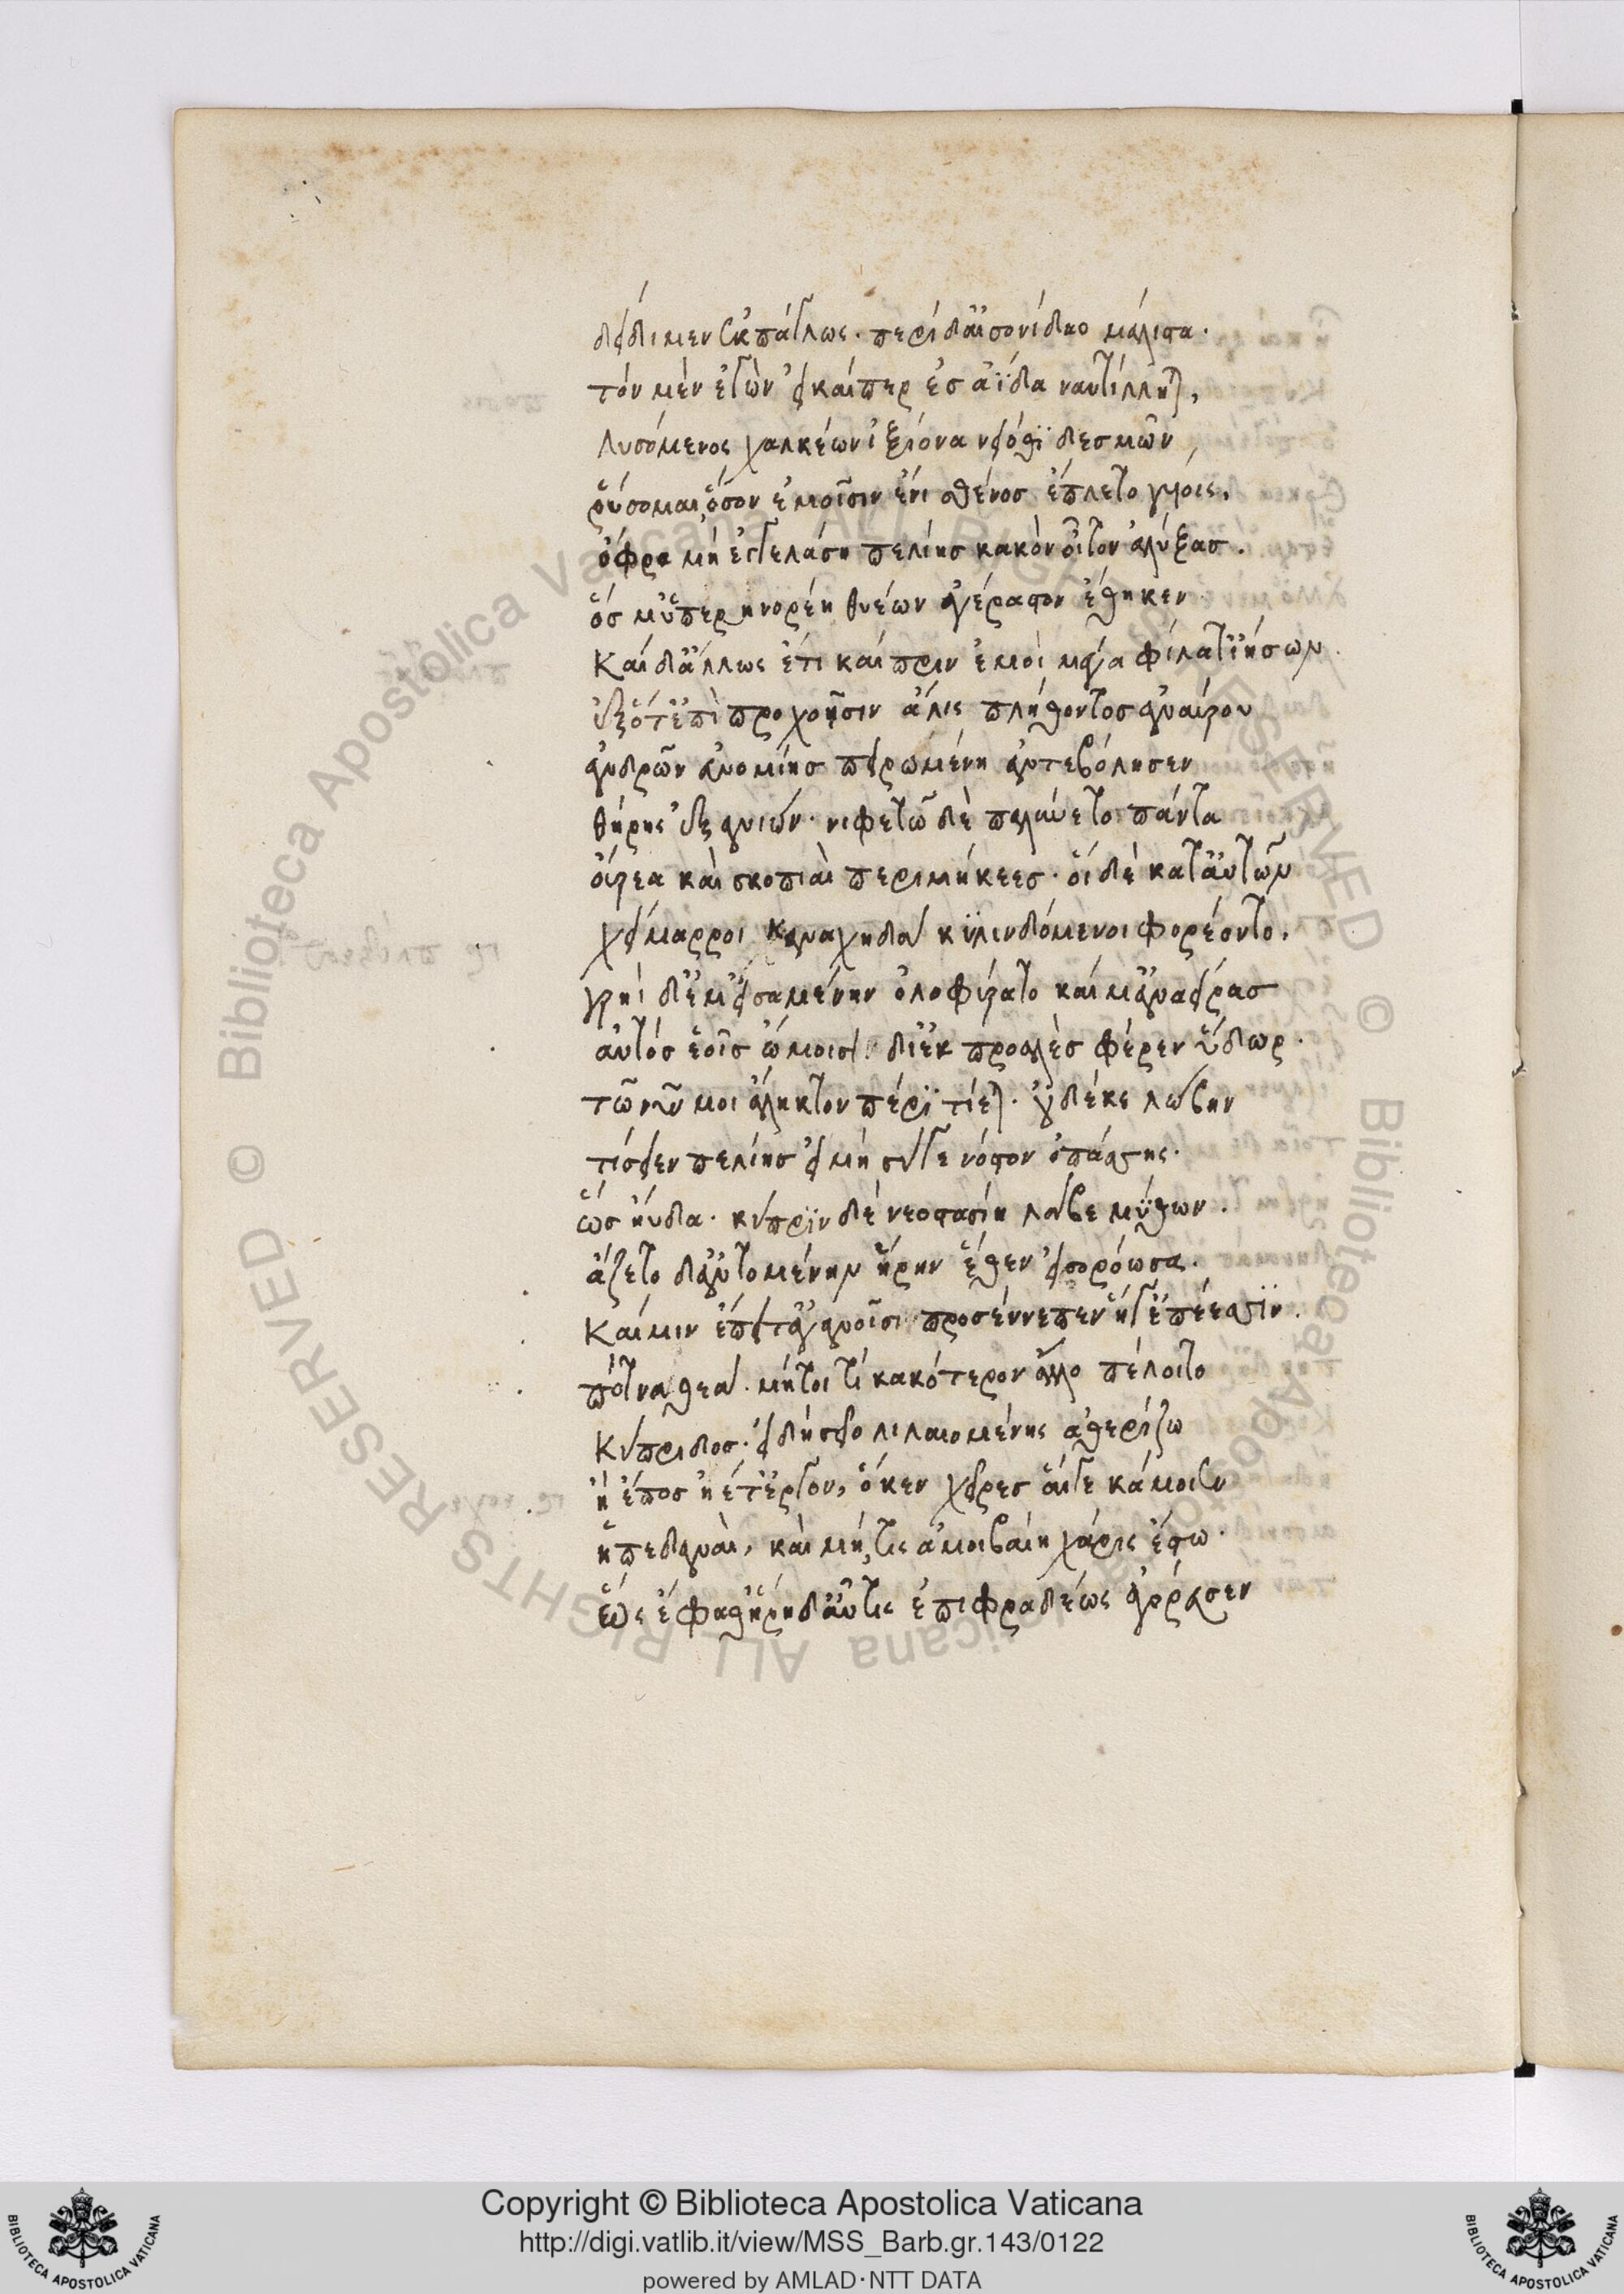 δείδιμεν ἐκπάγλως· περὶ δ' αἰσονίδαο μάλιστα·
τὸν μὲν ἐγὼν εἰ καί περ ἐς ἄϊδα ναυτίλληται,
λυσόμενος χαλκέων ἰξίονα νειόθι δεσμῶν
ῥύσομαι ὅσον ἐμοῖσιν ἐνὶ σθένος ἔπλετο γυίοις,
ὄφρα μὴ ἐγγελάσῃ πελίης κακὸν οἶτον ἀλύξας.
ὅς μ' ὑπερηνορέῃ θυέων ἀγέραστον ἔθηκεν·
Καὶ δ' ἄλλως ἔτι καὶ πρὶν ἐμοὶ μέγα φίλατ' ἰήσων
ἐξότ' ἐπὶ προχοῇσιν ἅλις πλήθοντος ἀναύρου
ἀνδρῶν εὐνομίης πειρωμένῃ ἀντεβόλησεν
θήρης ἐξανιών· νιφετῷ δὲ παλύνετο πάντα
οὔρεα καὶ σκοπιαὶ περιμήκεες· οἱ δὲ κατ' αὐτῶν
χείμαρροι καναχηδὰ κυλινδόμενοι φορέοντο,
γρηῒ δέ μ' εἰσαμένην ὀλοφύρατο καί μ' ἀναείρας
αὐτὸς ἑοῖς ὤμοισι διὲκ προαλὲς φέρεν ὕδωρ·
τῶ νύ μοι ἄληκτον πέρι τίεται· οὐδέ κε λώβην
τίσειεν πελίης εἰ μὴ σύ γε νόστον ὀπάσσῃς·
ὣς ηὔδα· κύπριν δὲ νεοστασίη λάβε μύθων.
ἅζετο δ' ἀντομένην ἥρην ἕθεν εἰσορόωσα.
Καί μιν ἔπειτ' ἀγανοῖσι προσέννεπεν ἥγ' ἐπέεσσιν.
πότνα θεά· μή τοί τι κακώτερον ἄλλο πέλοιτο
Κύπριδος· εἰ δὴ σεῖο λιλαιομένης ἀθερίζω
ἢ ἔπος ἠέ τι ἔργον, ὅ κεν χέρες αἵγε κάμοιεν
ἠπεδαναί, καὶ μή τις ἀμοιβαίη χάρις ἔστω·
ὣς ἔφαθ' ἥρη δ' αὖτις ἐπιφραδέως ἀγόρευσεν
Copyright © Biblioteca Apostolica Vaticana
http://digi.vatlib.it/view/MSS_Barb.gr.143/0122
powered by AMLAD·NTT DATA